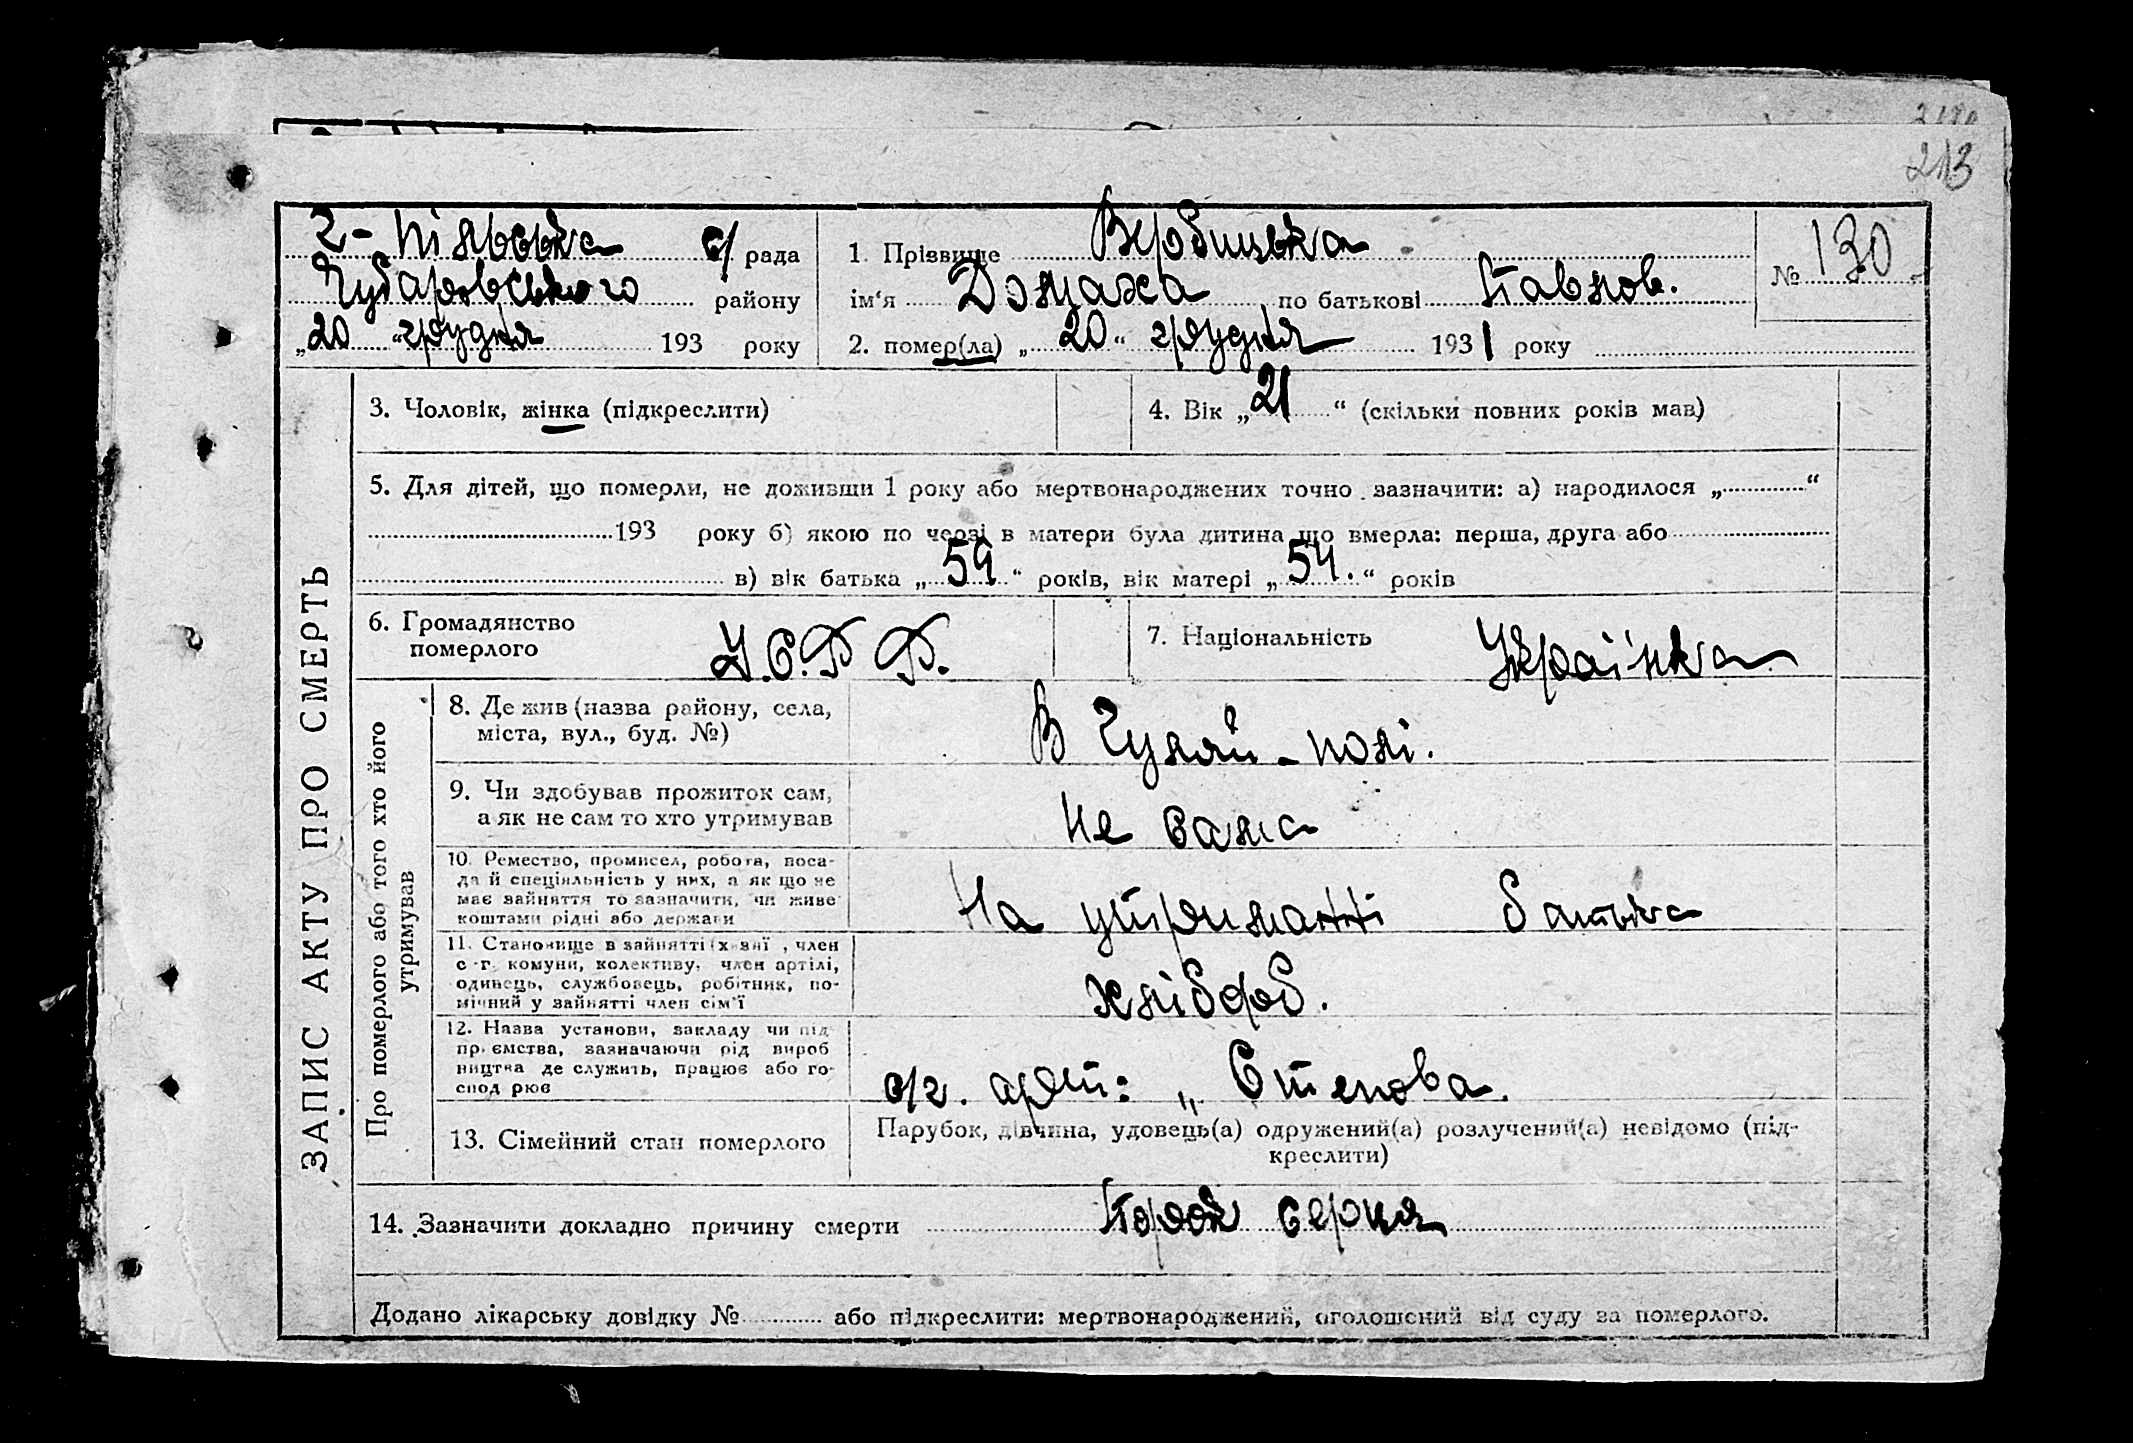 213
Г-пільська с/ рада
Чубарівського району
„20“ грудня 193 року
1. Прізвище Вербицька
ім‘я Домаха по батькові Павлов.
№ 130
2. помер(ла) „20“ грудня 1931 року
ЗАПИС АКТУ ПРО СМЕРТЬ
3. Чоловік, жінка (підкреслити)
4. Вік „21“ (скільки повних років мав)
5. Для дітей, що померли, не доживши 1 року або мертвонароджених точно зазначити: а) народилося „ “
193 року б) якою по черзі в матери була дитина що вмерла: перша, друга або
в) вік батька „59“ років, вік матері „54.“ років
6. Громадянство
померлого У.С.Р Р.
7. Національність Українка
Про померлого або того хто його
утримував
8. Де жив (назва району, села,
міста, вул., буд. №)
В Гуляй-полі.
9. Чи здобував прожиток сам,
а як не сам то хто утримував
Не сама
10. Ремество, промисел, робота, поса-
да й спеціяльність у них, а як що не
має зайняття то зазначити, чи живе
коштами рідні або держави
На утриманні батька
11. Становище в зайнятті (х , член
с.-г. комуни, колективу, член артілі,
одинець, службовець, робітник, по-
мічний у зайнятті член сім’ї
хлібороб.
12. Назва установи, закладу чи під
пр. ємства, зазначаючи рід вироб
ництва де служить, працює або го-
спод рює
с/г. арт: „Степова.
13. Сімейний стан померлого
Парубок, дівчина, удовець(а) одружений(а) розлучений(а) невідомо (під-
креслити)
14. Зазначити докладно причину смерти Порок серця
Додано лікарську довідку № або підкреслити: мертвонароджений, оголошений від суду за померлого.